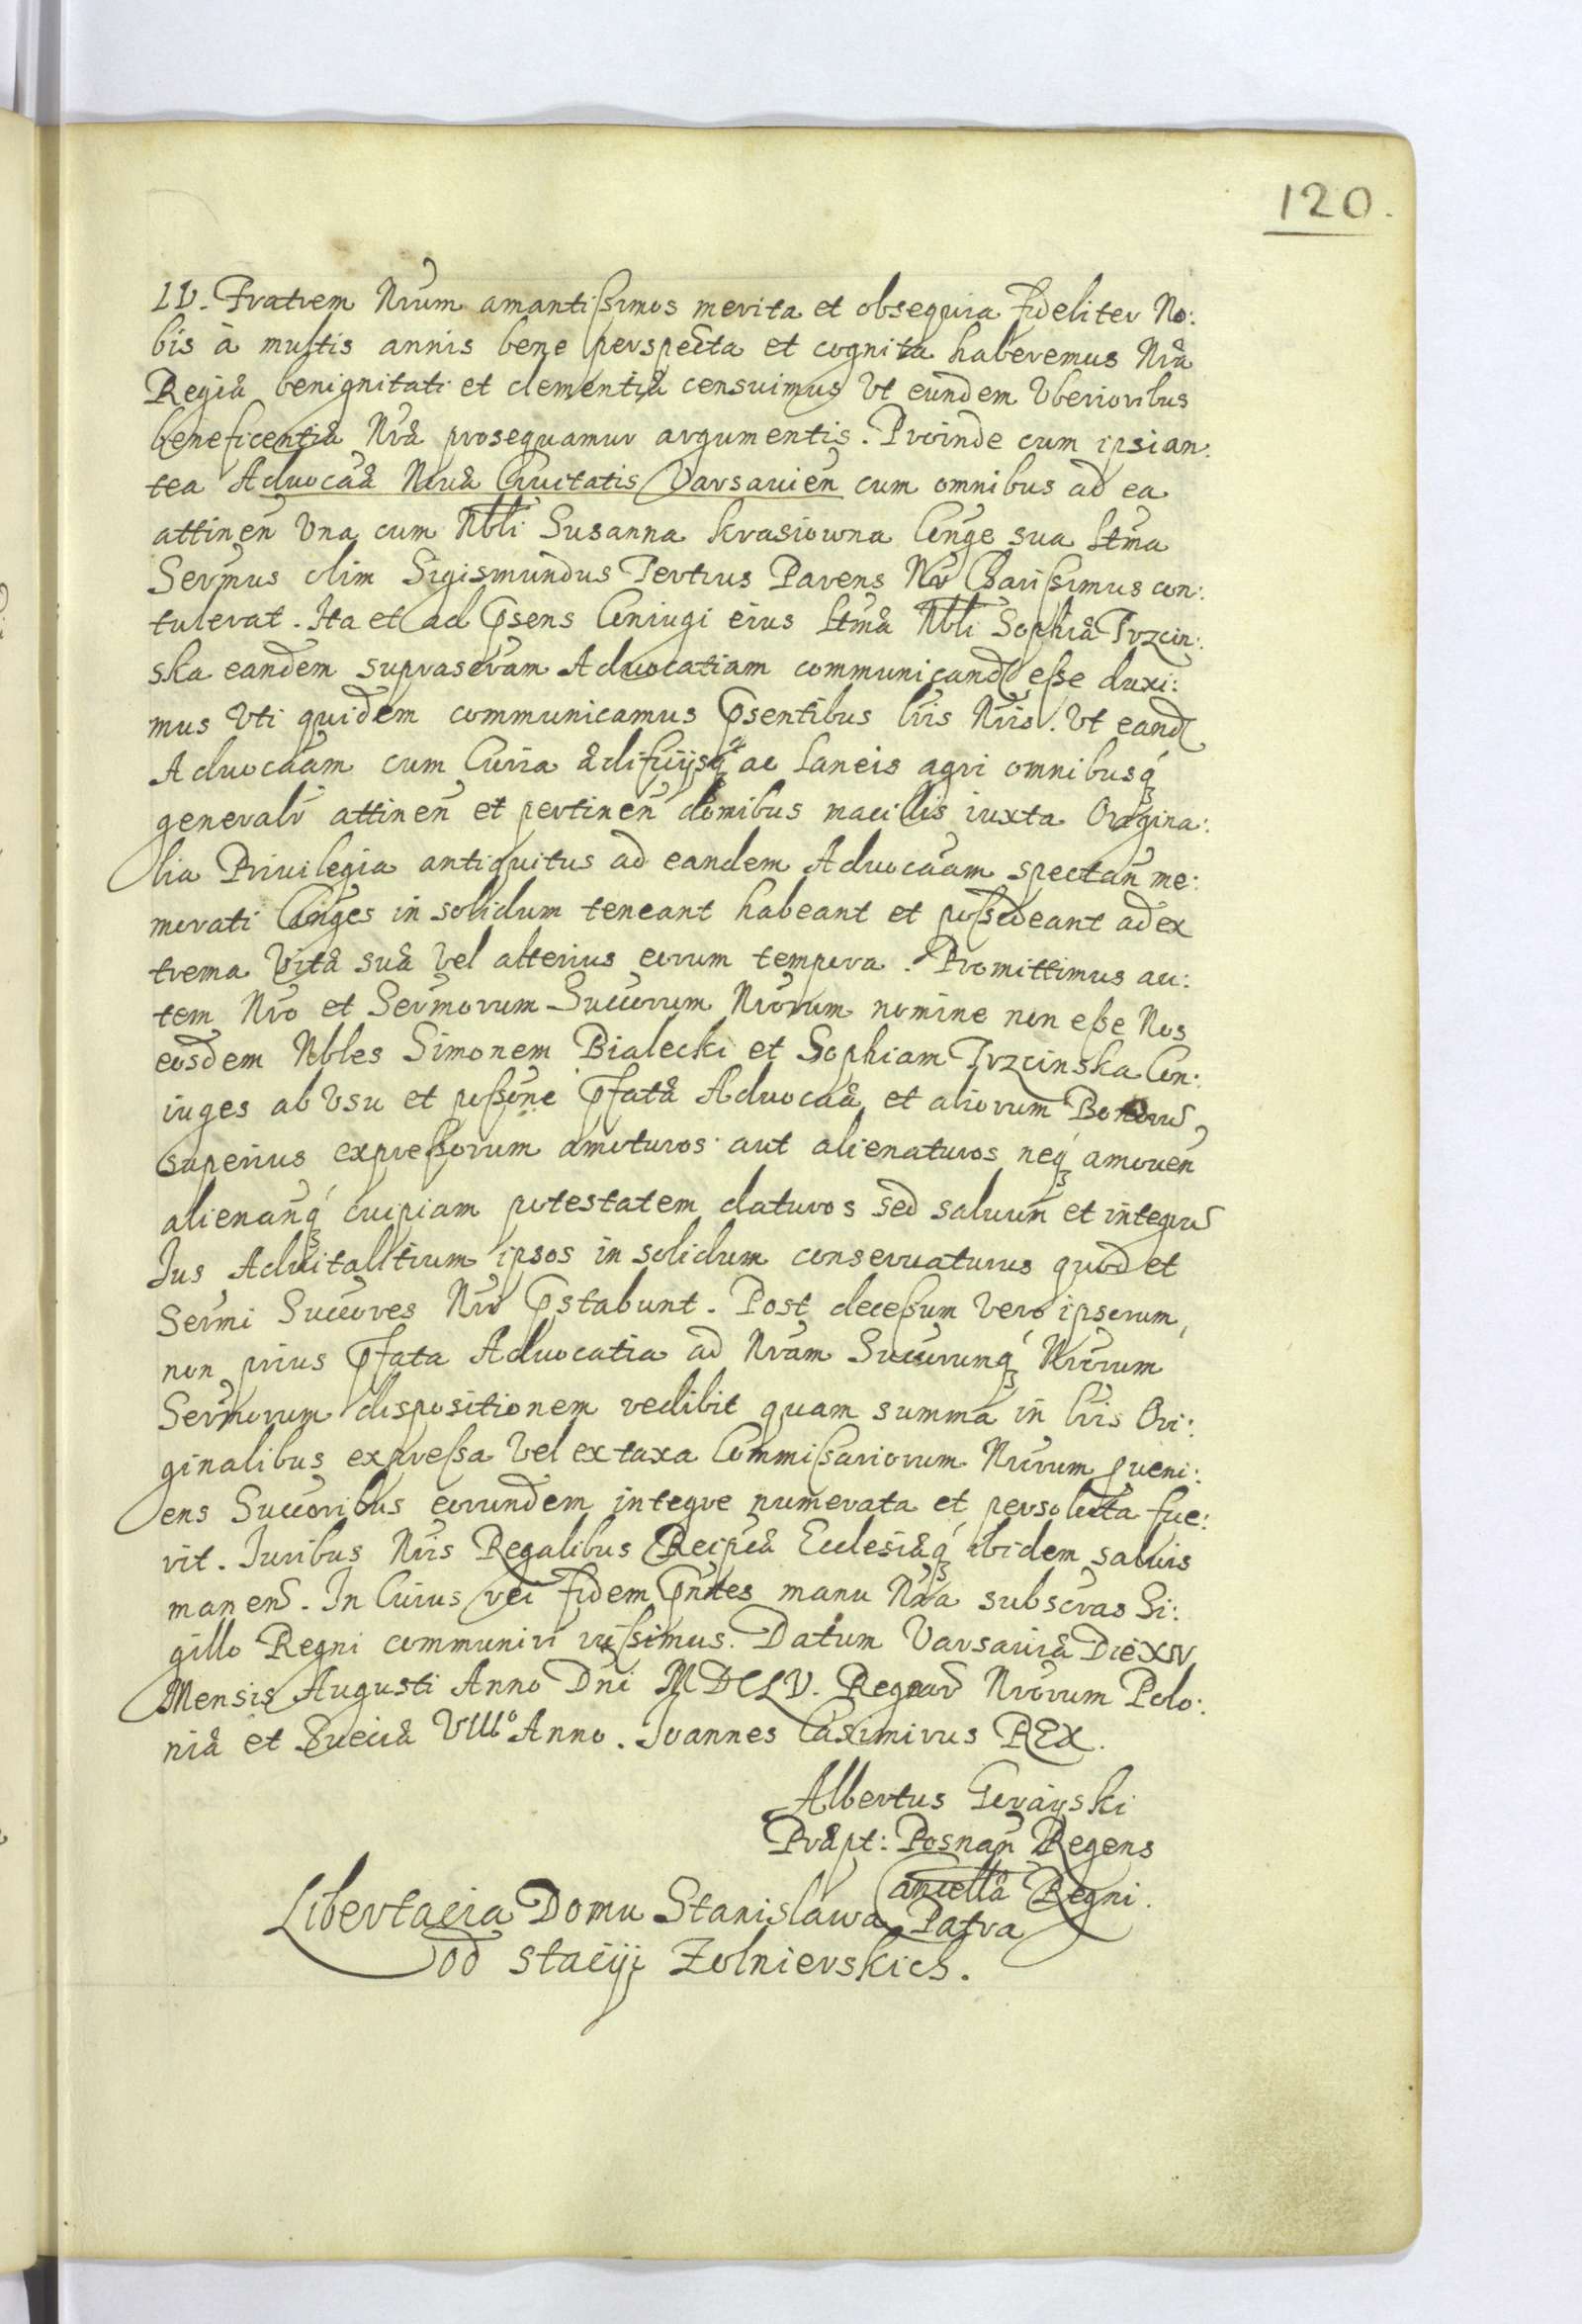 120.
IV. Fratrem Nrum amantißimos merita et obsequia fideliter No:
bis à multis annis bene perspecta et cognita haberemus Nræ
Regiæ benignitati et clementiæ censuimus Vt eundem Vberioribus
beneficentiæ Nræ prosequamur argumentis. Proinde cum ipsi an:
tea Aduocaæ Nouæ Ciuitatis Varsauien cum omnibus ad ea
attinen Vna cum Nbli Susanna Krasiowna Conge sua ltma
Sermus olim Sigismundus Tertius Parens Nr Charißimus con:
tulerat. Ita et ad psens Coniugi eius ltmæ Nbli Sophiæ Trzcin:
ska eandem suprascram Aduocatiam communicand eße duxi:
mus Vti quidem communicamus psentibus lris Nris. Vt eand
Aduocaam cum Curia ædificijsq ac laneis agri omnibusq
generalr attinen et pertinen domibus macillis iuxta Origina:
lia Priuilegia antiquitus ad eandem Aduocaam spectan me:
morati Conges in solidum teneant habeant et poßedeant ad ex
trema Vitæ suæ Vel alterius eorum tempora. Promittimus au:
tem Nro et Sermorum Succorum Nrorum nomine non eße Nos
eosdem Nbles Simonem Bialecki et Sophiam Trzcinska Con:
iuges ab Vsu et poßone pfatæ Aduocaæ et aliorum Bonoru
superius expreßorum amoturos aut alienaturos neq amouen
alienanq cuipiam potestatem daturos sed saluum et integru
Ius Aduitalitium ipsos in solidum conseruaturus quod et
Sermi Succores Nri pstabunt. Post deceßum Vero ipsorum,
non prius pfata Aduocatia ad Nram Succorumq Nrorum
Sermorum dispositionem redibit quam summa in lris Ori:
ginalibus expreßa Vel ex taxa Commißariorum Nrorum pueni:
ens Succoribus eorundem integre numerata et persoluta fue:
rit. Iuribus Nris Regalibus Reipcæ Ecclesiæq ibidem saluis
manen. In Cuius rei fidem pntes manu Nra subscras Si:
gillo Regni communiri iußimus. Datum Varsauiæ Die XIV
Mensis Augusti Anno Dni MDCLV. Regnor Nrorum Polo:
niæ et Sueciæ VIIIo Anno. Ioannes Casimirus REX.
Albertus Gorayski
Præpt: Posnan Regens
Cancellæ Regni.
Libertacia Domu Stanislawa Patra
od stacyji Zolnierskich.